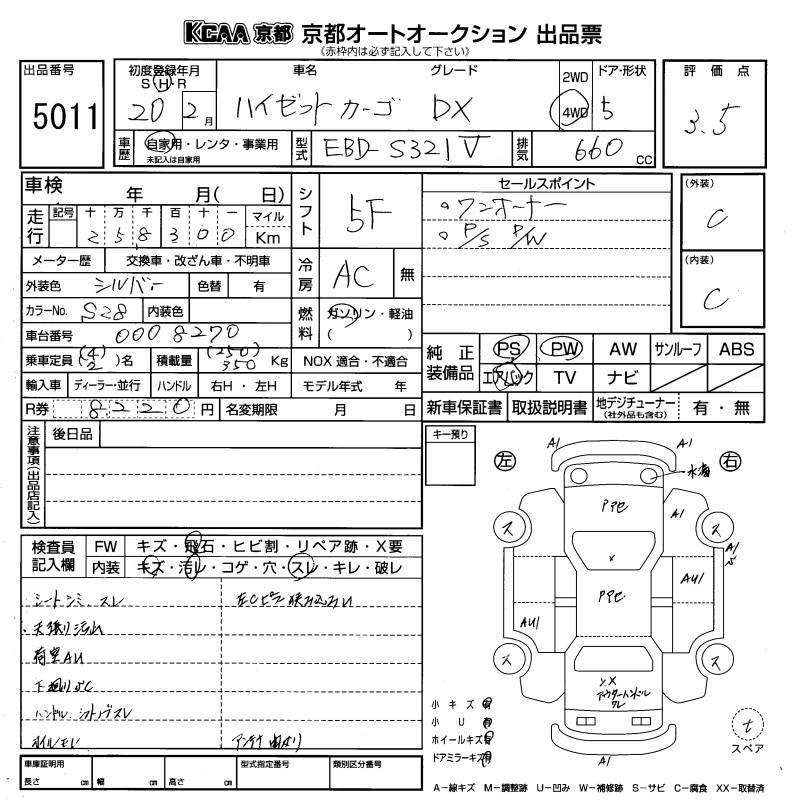 KCAA 京都 京都オートオークション 出品票
(赤枠内は必ず記入して下さい)
出品番号 初度登録年月 車名 グレード 2WD ドア・形状 評価点
S H R
5011 20 2月 ハイゼットカーゴ DX 4WD 5 3.5
車歴 自家用・レンタ・事業用 型式 EBD-S321V 排気 660 CC
未記入は自家用
車検 年 月( 日) シフト 5F セールスポイント (外装)
走行 記号 十 万 千 百 十 一 マイル 。ワンオーナー C
2 5 8 3 0 0 Km 。P/S P/W
メーター歴 交換車・改ざん車・不明車 冷房 AC 無 (内装)
外装色 シルバー 色替 有 C
カラーNo. S28 内装色 燃料 ガソリン・軽油
車台番号 0008270 ( )
乗車定員 (4) 2 名 積載量 (250) 350 Kg NOX 適合・不適合 純正装備品 PS PW AW サンルーフ ABS
輸入車 ディーラー・並行 ハンドル 右H・左H モデル年式 年 エアバック TV ナビ
R券 8220円 名変期限 月 日 新車保証書 取扱説明書 地デジチューナー (社外品も含む) 有・無
注意事項(出品店記入) 後日品 キー預り
左 A1 A1 右
水滴
PアセA1
ス ス
A1
PアセAU1
AU1
ス ス
検査員記入欄 FW キズ・飛石・ヒビ割・リペア跡・X要
内装 キズ・汚レ・コゲ・穴・スレ・キレ・破レ
シートシミ、スレ
・天張り汚れ
荷室AU
下廻りSC
ハンドル
アンテナ曲がり
Y、X
アウターハンドルワレ
小キズ有
小U有
ホイールキズ有
ドアミラーキズ有
A1
t
スペア
車庫証明用 型式指定番号 類別区分番号
長さ cm 幅 cm 高さ cm
A−線キズ M−調整跡 U−凹み W−補修跡 S−サビ C−腐食 XX−取替済